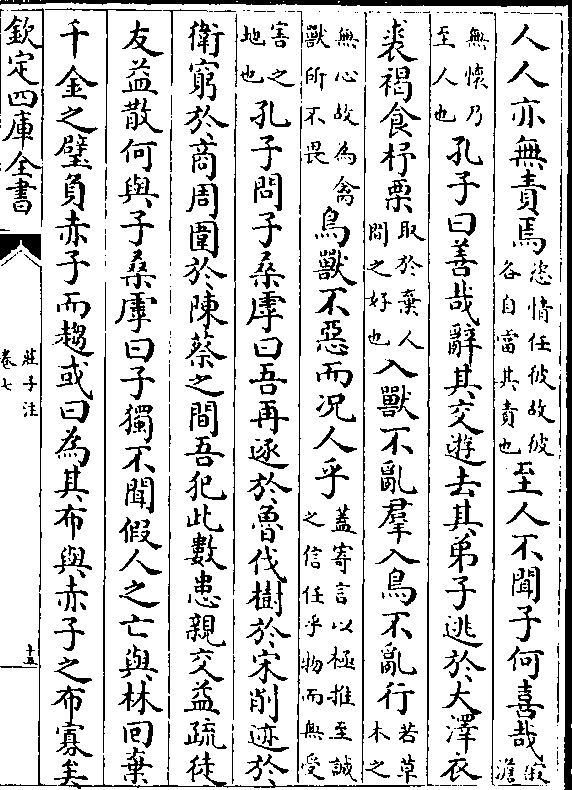 人人亦無責焉恣情任彼故彼各自當其責也至人不聞子何喜哉寂澹
無懷乃至人也孔子曰善哉辭其交遊去其弟子逃於大澤衣
裘褐食杼栗取於棄人間之好也入獸不亂羣入鳥不亂行若草木之
無心故為禽獸所不畏鳥獸不惡而况人乎蓋寄言以極推至誠之信任乎物而無受
害之地也孔子問子桑雽曰吾再逐於魯伐樹於宋削迹於
衛窮於商周圍於陳蔡之間吾犯此數患親交益疏徒
友益散何與子桑雽曰子獨不聞假人之亡與林回棄
千金之璧負赤子而趨或曰為其布與赤子之布寡矣
欽定四庫全書
莊子注
卷七
十五